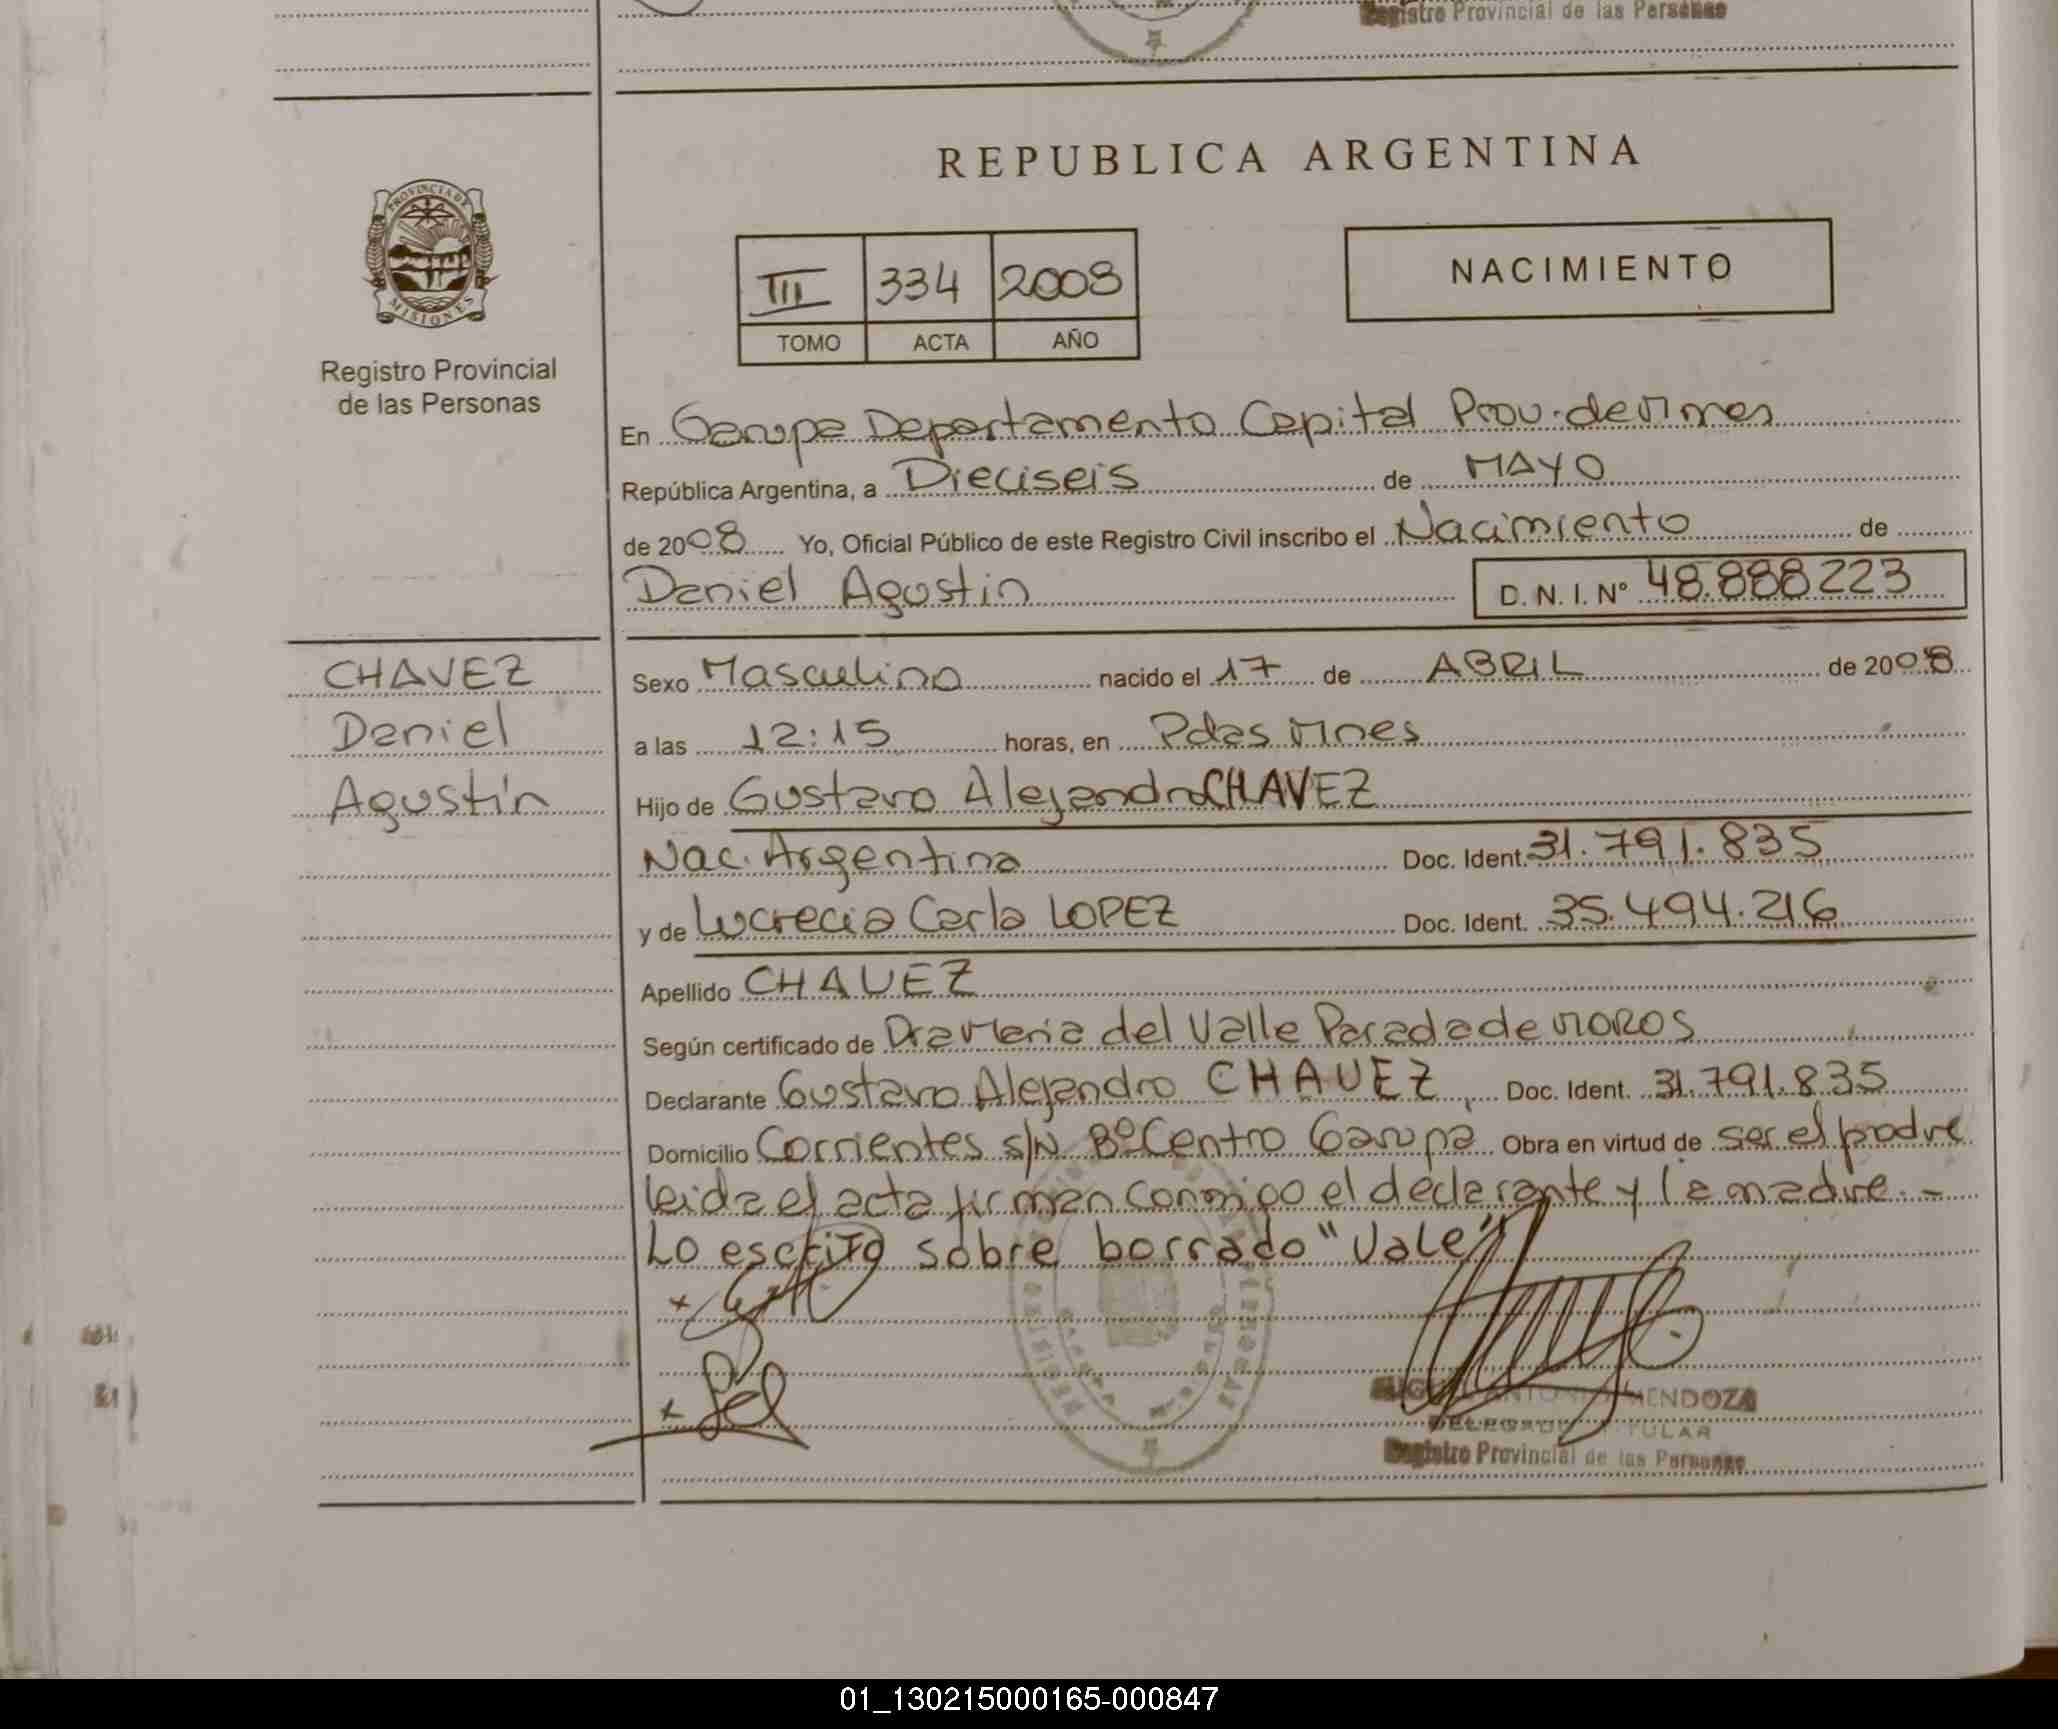 Registro Provincial de las Personas
REPUBLICA ARGENTINA
PROVINCIA DE
MISIONES
Registro Provincial
de las Personas
III 334 2008
TOMO ACTA AÑO
NACIMIENTO
En Garupa Departamento Capital Prov. de Mnes
República Argentina, a Dieciseis de MAYO
de 2008 Yo, Oficial Público de este Registro Civil inscribo el Nacimiento de
Daniel Agustin D.N.I. Nº 48.888223
CHAVEZ
Daniel
Agustín
Sexo Masculino nacido el 17 de ABRIL de 2008
a las 12:15 horas, en Pdas Mnes
Hijo de Gustavo Alejandro CHAVEZ
Nac. Argentina Doc. Ident. 31.791.835
y de Lucrecia Carla LOPEZ Doc. Ident. 35.494.216
Apellido CHAVEZ
Según certificado de Dra Maria del Valle Parada de MOROS
Declarante Gustavo Alejandro CHAVEZ, Doc. Ident. 31.791.835
Domicilio Corrientes s/N Bº Centro Garupa Obra en virtud de ser el padre
leida el acta firman conmigo el declarante y la madre.-
Lo escrito sobre borrado "Vale"
ANTONIO MENDOZA
DELEGADO TITULAR
Registro Provincial de las Personas
01_130215000165-000847